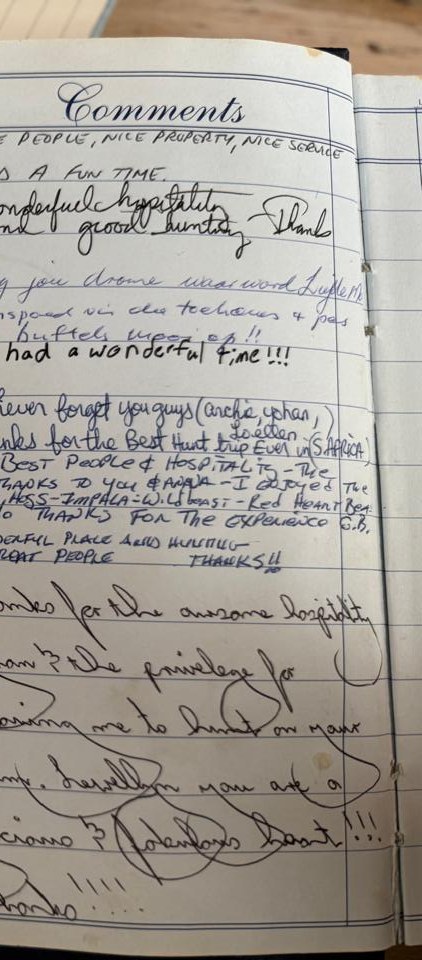 Comments
E PEOPLE, NICE PROPERTY, NICE SERVICE
A FUN TIME.
onderful hospitality
nd good hunting - Thanks
g jou drome waarword
had a wonderful time!!!
ever forget you guys (archie, yohan,
Loellen
nks for the Best Hunt trip Ever in (S. AFRICA)
BEST PEOPLE & HOSPITALITY - THE
THANKS TO YOU & ANNA - I ENJOYED THE
HOSS - IMPALA - WILDBEAST - RED HEART BEA
THANKS FOR THE EXPERIENCE G.B.
DERFUL PLACE AND HUNTING
REAT PEOPLE THANKS!!
anks for the awesome hospitality
& the privelege for
me to hunt on your
Lewellyn you are a
& fabulous heart!!!
hanks!!!!